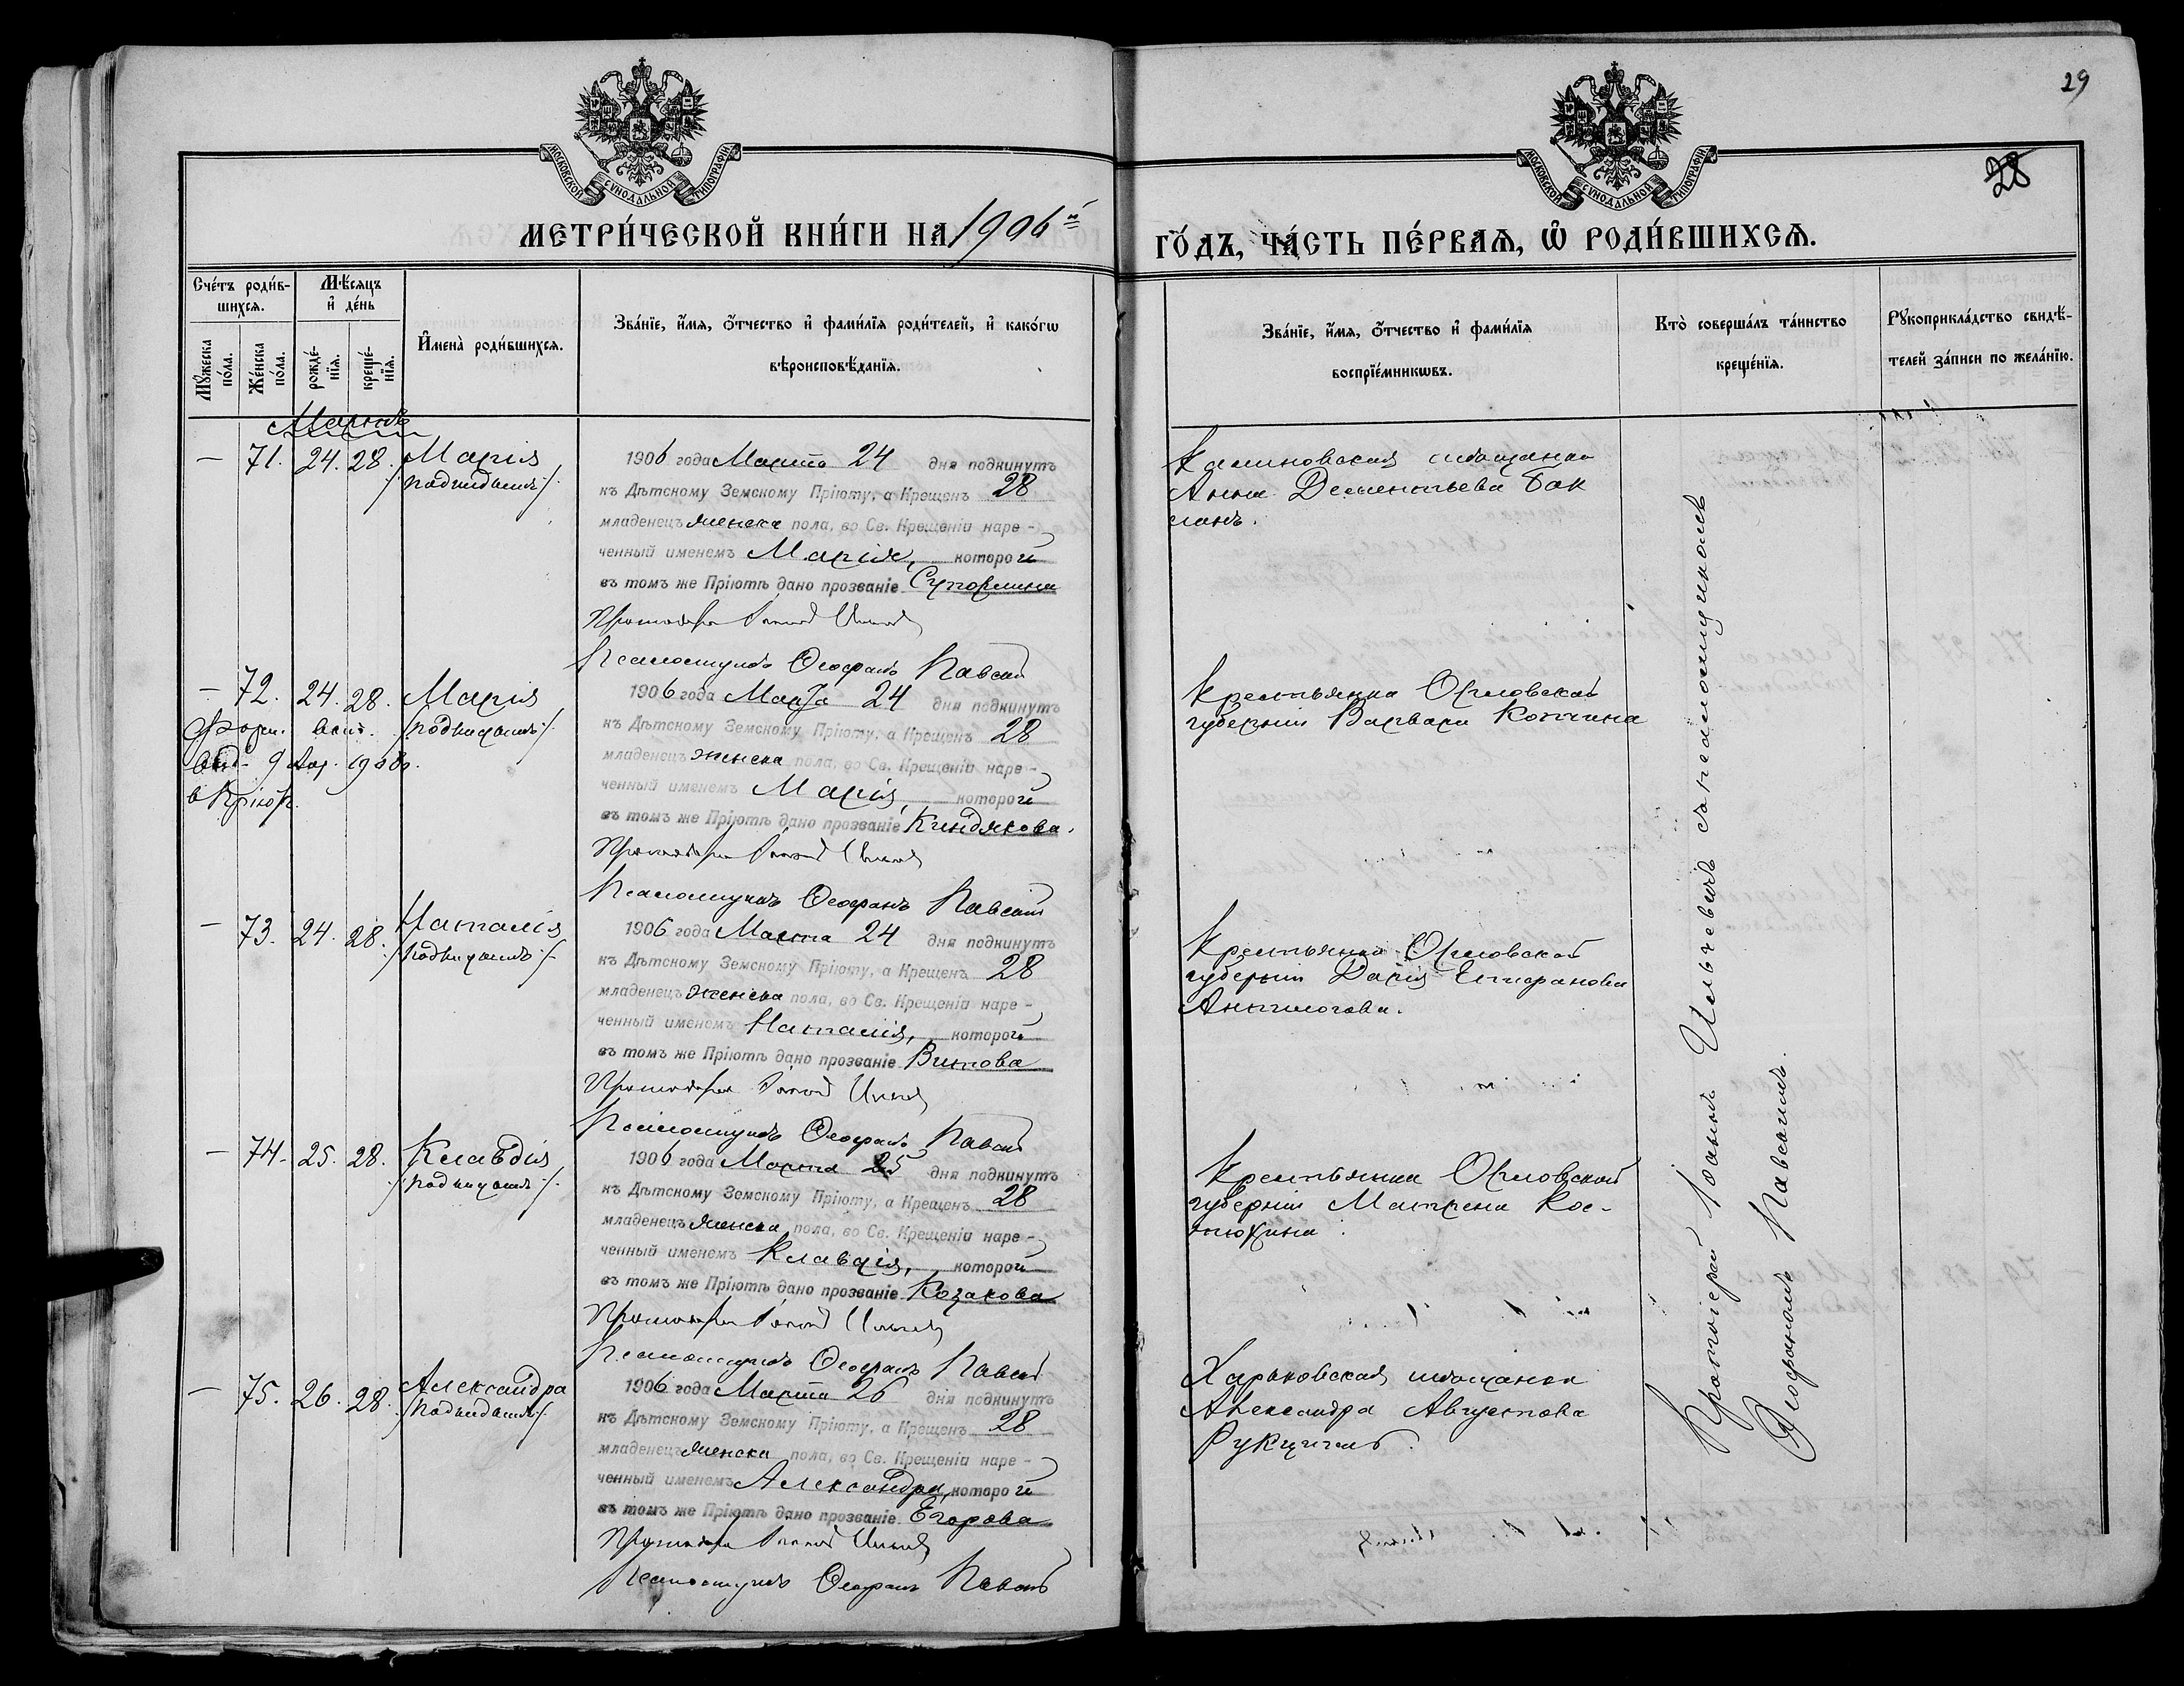 29
28
МОСКОВСКОЙ СѴНОДАЛЬНОЙ ТИПОГРАФІИ
МОСКОВСКОЙ СѴНОДАЛЬНОЙ ТИПОГРАФІИ
МЕТРИ́ЧЕСКОЙ КНИ́ГИ НА 1906й
ГО́ДЪ, ЧА́СТЬ ПЕ́РВАѦ, Ѽ РОДИ́ВШИХСѦ.
Сче́тъ роди́в-
шихсѧ.
Мꙋ́жеска
по́ла.
Же́нска
по́ла.
Мѣ́сѧцъ
и҆ де́нь
рожде́-
нїѧ.
креще́-
нїѧ.
И҆мена̀ роди́вшихсѧ.
Зва́нїе, и҆́мѧ, ѻ҆́тчество и҆ фами́лїѧ роди́телей, и҆ како́гѡ
вѣроисповѣ́данїѧ.
Зва́нїе, и҆́мѧ, ѻ҆́тчество и҆ фами́лїѧ
воспрїе́мникѡвъ.
Кто̀ соверша́лъ та́инство
креще́нїѧ.
Рꙋкоприкла́дство свидѣ́-
телей за́писи по жела́нїю.
Мартъ
— 71. 24. 28. Марія
/подкидышъ/.
1906 года Марта 24 дня подкинутъ
къ Дѣтскому Земскому Пріюту, а Крещенъ 28
младенецъ женска пола, во Св. Крещеніи наре-
ченный именемъ Марія, которой
въ томъ же Пріютѣ дано прозваніе
Псаломщикъ Ѳеофанъ
мѣщанка
Анна Дементьева Бак
ланъ.
— 72. 24. 28. Марія
/подкидышъ/.
в Пріют.
1906 года Марта 24 дня подкинутъ
къ Дѣтскому Земскому Пріюту, а Крещенъ 28
младенецъ женска пола, во Св. Крещеніи наре-
ченный именемъ Марія, которой
въ томъ же Пріютѣ дано прозваніе Киндякова.
Псаломщикъ Ѳеофанъ
Крестьянка Орловской
губерніи Варвара Копчина
— 73. 24. 28. Наталія
/подкидышъ/.
1906 года Марта 24 дня подкинутъ
къ Дѣтскому Земскому Пріюту, а Крещенъ 28
младенецъ женска пола, во Св. Крещеніи наре-
ченный именемъ Наталія, которой
въ томъ же Пріютѣ дано прозваніе Витова
Псаломщикъ Ѳеофанъ
Крестьянка Орловской
губерніи Дарія
— 74. 25. 28. Клавдія
/подкидышъ/.
1906 года Марта 25 дня подкинутъ
къ Дѣтскому Земскому Пріюту, а Крещенъ 28
младенецъ женска пола, во Св. Крещеніи наре-
ченный именемъ Клавдія, которой
въ томъ же Пріютѣ дано прозваніе Козакова
Псаломщикъ Ѳеофанъ
Крестьянка Орловской
губерніи Матрена Кос-
тюхина.
— 75. 26. 28. Александра
/подкидышъ/.
1906 года Марта 26 дня подкинутъ
къ Дѣтскому Земскому Пріюту, а Крещенъ 28
младенецъ женска пола, во Св. Крещеніи наре-
ченный именемъ Александра, которой
въ томъ же Пріютѣ дано прозваніе Егорова
Псаломщикъ Ѳеофанъ
Харьковская мѣщанка
Александра Августова
Протоіерей Іоаннъ Ильчевичъ съ псаломщикомъ
Ѳеофаномъ